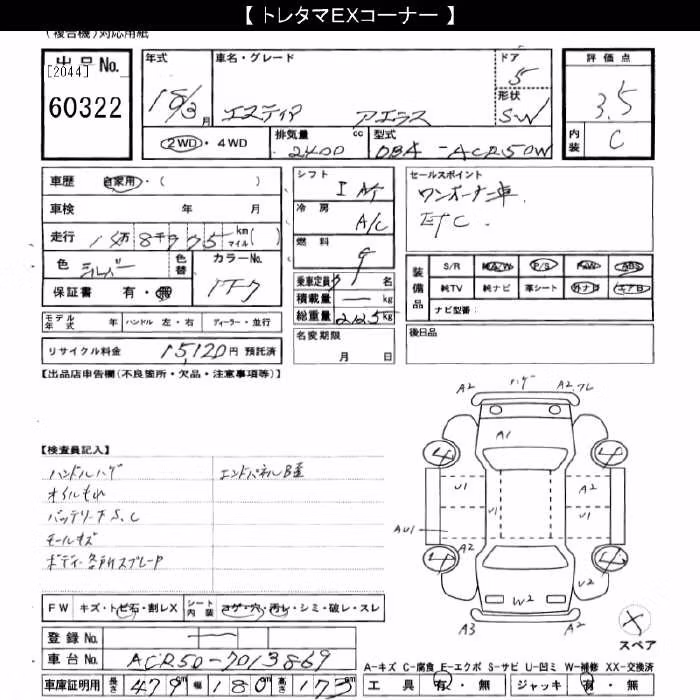 【 トレタマEXコーナー 】
(複合機)対応用紙
出品No.
[2044]
60322
年式
18/3月
車名・グレード
エスティマ アエラス
ドア
5
形状
SW
評価点
3.5
内装
C
2WD・4WD
排気量 cc
2400
型式
DBA-ACR50W
車歴 自家用・( )
車検 年 月
走行 km マイル( )
色 シルバー
色替
カラーNo.
1F7
保証書 有・無
モデル年式 年 ハンドル 左・右 ディーラー・並行
リサイクル料金 15,120円 預託済
シフト
I AT
冷房
A/C
燃料
乗車定員 7 名
積載量 ー kg
総重量 2125 kg
名変期限
月 日
セールスポイント
ワンオーナー車.
ETC.
装備品
S/R 純A/W P/S P・W ABS
純TV 純ナビ 革シート 外ナビ エアB
ナビ型番:
後日品
【出品店申告欄(不良箇所・欠品・注意事項等)】
【検査員記入】
ハンドルハゲ エンドパネルB歪
オイルもれ
バッテリー下S,C
モールキズ
ボディ・各所スプレーP
FW キズ・トビ石・割レX シート内装 コゲ・穴・汚レ・シミ・破レ・スレ
登録No. ー
車台No. ACR50-7013869
車庫証明用 長さ 479cm 幅 180cm 高さ 173cm
A2 ハゲ A2.フレ
A1
4 4
U1 U1 A2
AU1 A2 A2
4 4
U2
W2
A3 A2
X
スペア
A-キズ C-腐食 E-エクボ S-サビ U-凹ミ W-補修 XX-交換済
工具 有・無 ジャッキ 有・無